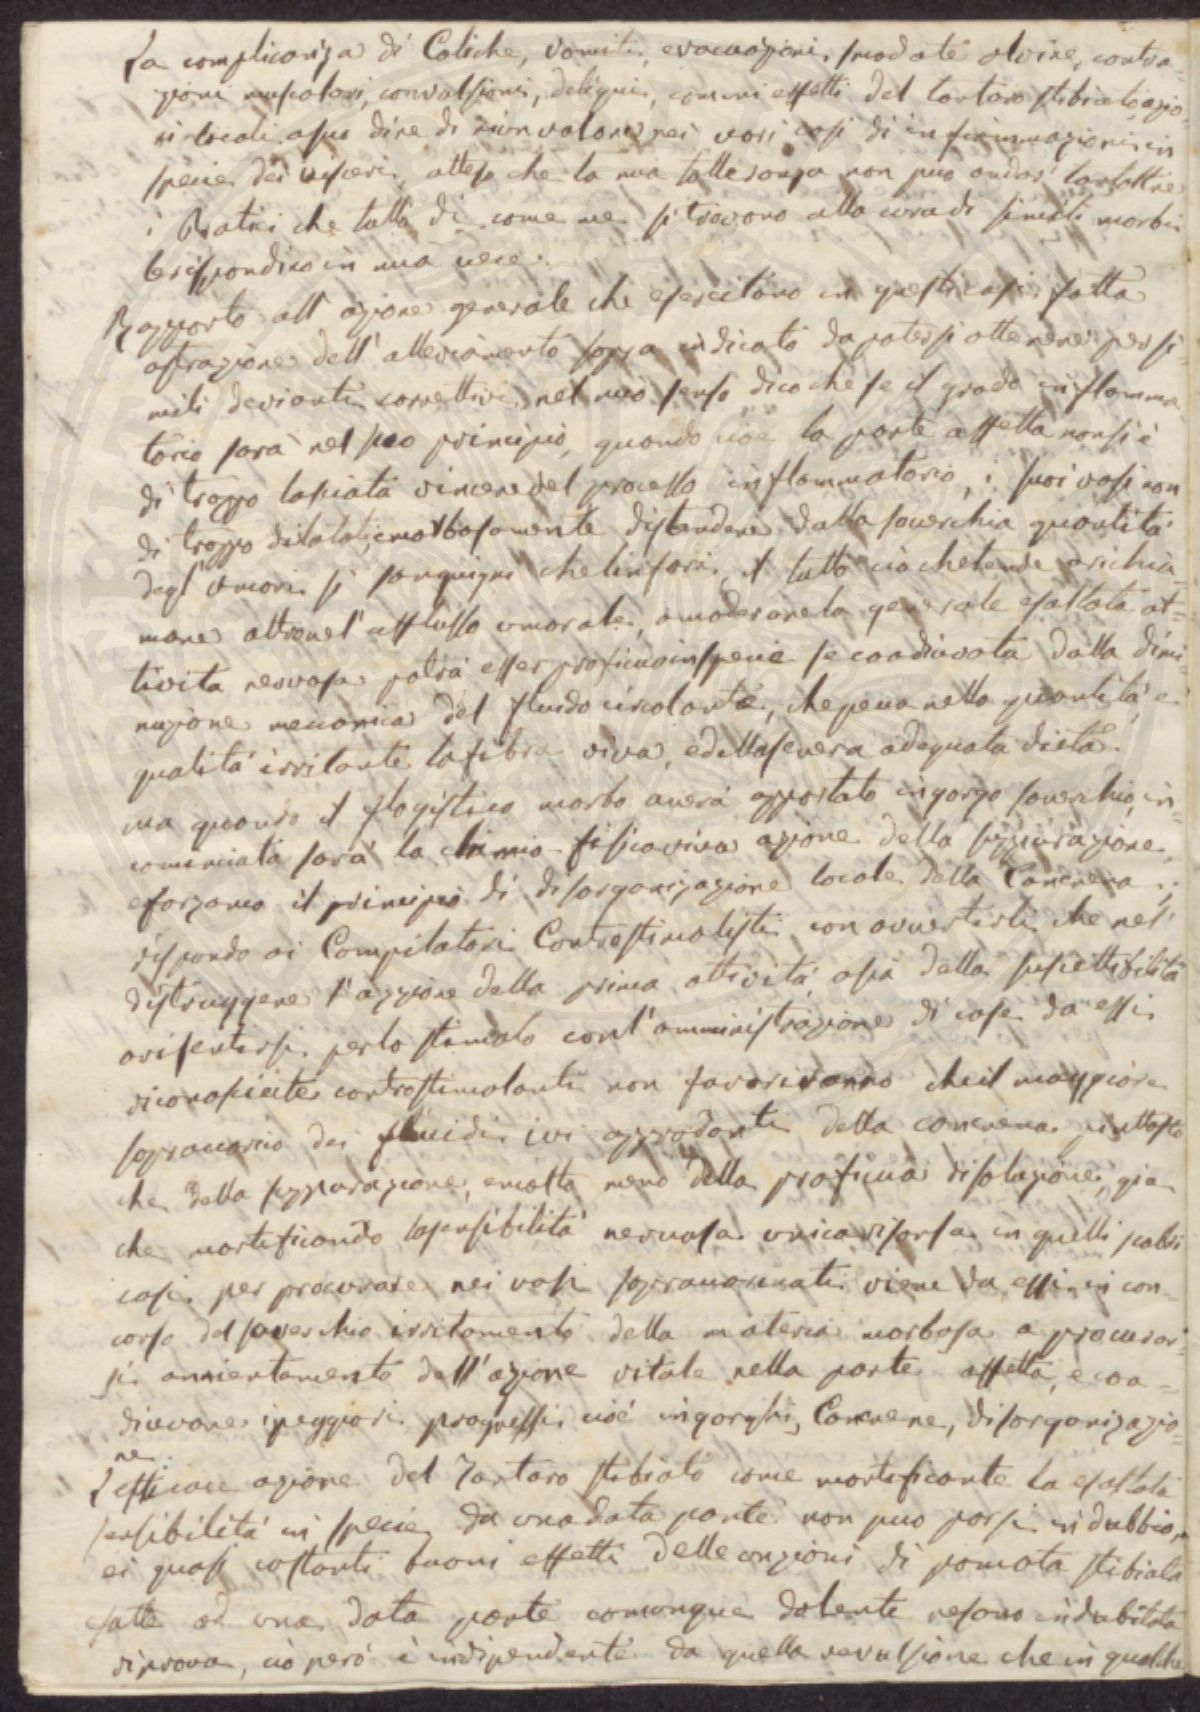 La complicanza di Coliche, vomiti, evacuazioni smodate alvine, contra-
zioni muscolari, convulsioni, deliqui, comuni effetti del tartaro stibiato, azio-
ni locali a suo dire di niun valore nei vari casi di infiammazioni in
specie dei visceri, atteso che la mia
i Pratici che tutto dì come me si trovono alla cura di simili morbi
le rispondino in mia vece.
Rapporto all' azione generale che esercitano in questi casi, fatta
astrazione dell' alleviamento sopra indicato da potersi ottenere per si-
mili devianti correttivi, nel mio senso dico che se il grado inflamma
torio sarà nel suo principio, quando cioè la parte affetta non si è
di troppo lasciata vincere del processo inflammatorio, i suoi vasi non
di troppo dilatati, e morbosamente distendere dalla soverchia quantità
degl' umori sì sanguigni che linfatici, il tutto ciò che tende a richia-
mare altrove l' afflusso umorale, a moderare la generale esaltata at-
tività nervosa potrà esser proficuo in specie se coadiuvata dalla dimi
nuzione meccanica del fluido circolante, che pecca nella quantità, e
qualità irritante la fibra viva, e della severa adeguata dieta.
ma quando il flogistico morbo averà apportato ingorgo soverchio, in-
cominciata sarà la chimio-fisico viva azione della suppurazione,
e forzamo il principio di disorganizazione locale della Cancrena..
rispondo ai Compilatori Controstimolisti con avvertirli che nel
distruggere l' azzione della prima attività, osia della suscettibilità
a risentirsi per lo stimolo coll' amministrazione di cose da essi
riconosciute controstimolanti non favoriranno che il maggiore
sopraccarico dei fluidi ivi approdanti della cancrena piuttosto
che della suppurazione, e molto meno della proficua risoluzione, gia
che mortificando la sensibilità nervosa unica risorsa in quelli
casi per procurare nei vasi sopraccaricati viene da essi in con-
corso del soverchio irritamento della materia morbosa a procurar-
si annientamento dell' azione vitale nella parte affetta, e coa-
diuvare i peggiori progressi cioè ingorghi, Cancrene, disorganizazio-
ne
L' efficace azione del Tartaro stibiato come mortificante la esaltata
sensibilità in specie da una data parte non può porsi in dubbio,
ei quasi costanti buoni effetti delle unzioni di pomata stibiata
fatte ad una data parte comunque dolente ne sono indubitata
riprova, ciò però è indipendente da quella revulsione che in qualche